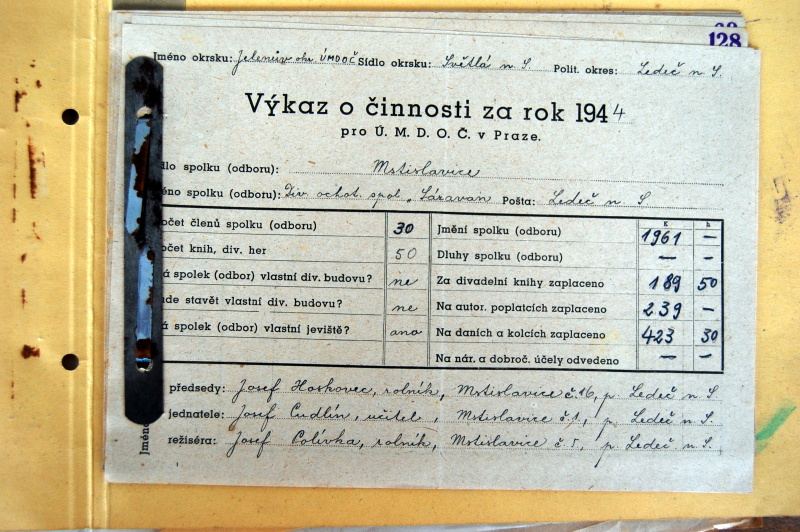 128
Jméno okrsku: Jelenův okr ÚMDOČ Sídlo okrsku: Světlá n S. Polit. okres: Ledeč n S.
Výkaz o činnosti za rok 1944
pro Ú. M. D. O. Č. v Praze.
dlo spolku (odboru): Mstislavice
éno spolku (odboru): Div. ochot. spol. „Sázavan Pošta: Ledeč n. S
očet členů spolku (odboru) 30 Jmění spolku (odboru) K 1961 h —
očet knih, div. her 50 Dluhy spolku (odboru) — —
á spolek (odbor) vlastní div. budovu? ne Za divadelní knihy zaplaceno 189 50
ude stavět vlastní div. budovu? ne Na autor. poplatcích zaplaceno 239 —
á spolek (odbor) vlastní jeviště? ano Na daních a kolcích zaplaceno 423 30
Na nár. a dobroč. účely odvedeno — —
Jméno
předsedy: Josef Hoskovec, rolník, Mstislavice č. 16, p. Ledeč n. S.
jednatele: Josef Cudlín, učitel, Mstislavice č. 1, p. Ledeč n. S.
režiséra: Josef Colívka, rolník, Mstislavice č. 5, p. Ledeč n. S.